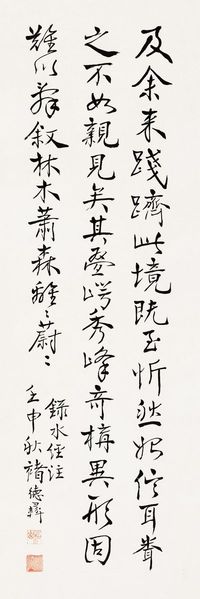 及余来踐躋此境既至忻然始信耳聞
之不如親見矣其疊崿秀峰奇構異形固
難以辞叙林木蕭森離〻蔚〻
錄水经注
壬申秋褚德彝